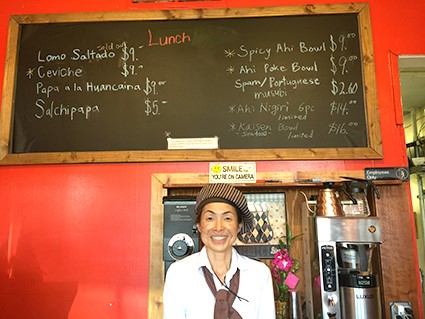 Lunch
Sold out
Lomo Saltado $9.-
* Ceviche $9.-
Papa a la Huancaina $9.00
Salchipapa $5.-
* Spicy Ahi Bowl $9.00
* Ahi Poke Bowl $9.00
Spam/Portuguese $2.60
musubi
* Ahi Nigiri 6pc $14.00
limited
* Kaisen Bowl $16.00
Seafood limited
SMILE
YOU'RE ON CAMERA
Employees
Only
LUXUS